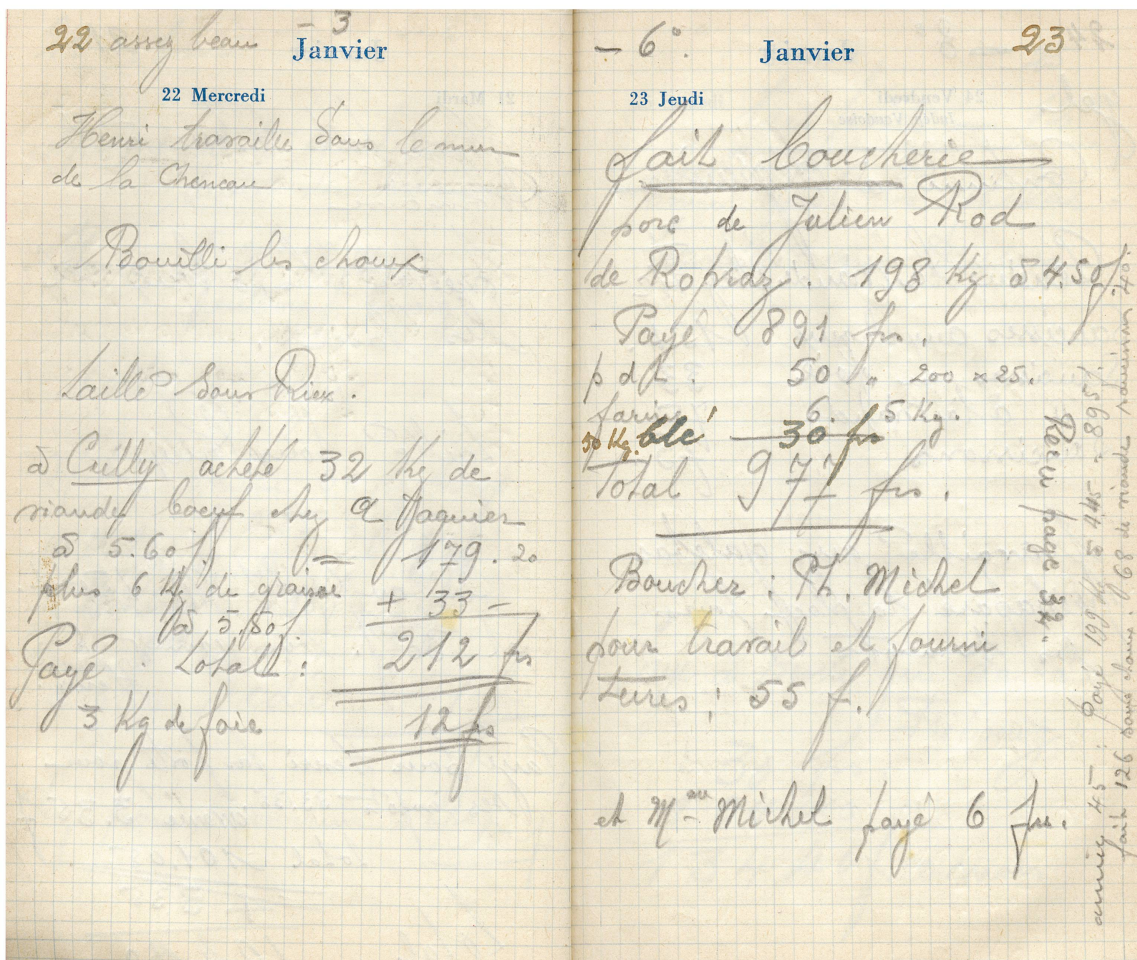 22 assez beau - 3
Janvier
22 Mercredi
Henri travaille dans le mur
de la Cheneau
Bouilli les choux
taillé sous Riex.
à Cully acheté 32 Kg de
viande boeuf chez A Jaquier
à 5.60 f. = 179.20
plus 6 Kg. de graisse + 33 -
à 5.50 f.
Payé. total: 212 frs
3 Kg de foie 12 frs
- 6°. 23
Janvier
23 Jeudi
fait boucherie
porc de Julien Rod
de Ropraz. 198 Kg à 4.50 f
Payé 891 frs.
p d t. 50 " 200 x 25.
farine 6. 5 Kg.
50 Kg. blé 30 frs
Total 977 frs.
Boucher: Ph. Michel
pour travail et fourni
tures: 55 f.
et Mme Michel payé 6 frs.
page 32.
année 45: Payé 199 kg à 445 = 895 f.
fait 126 68 de viande 40.